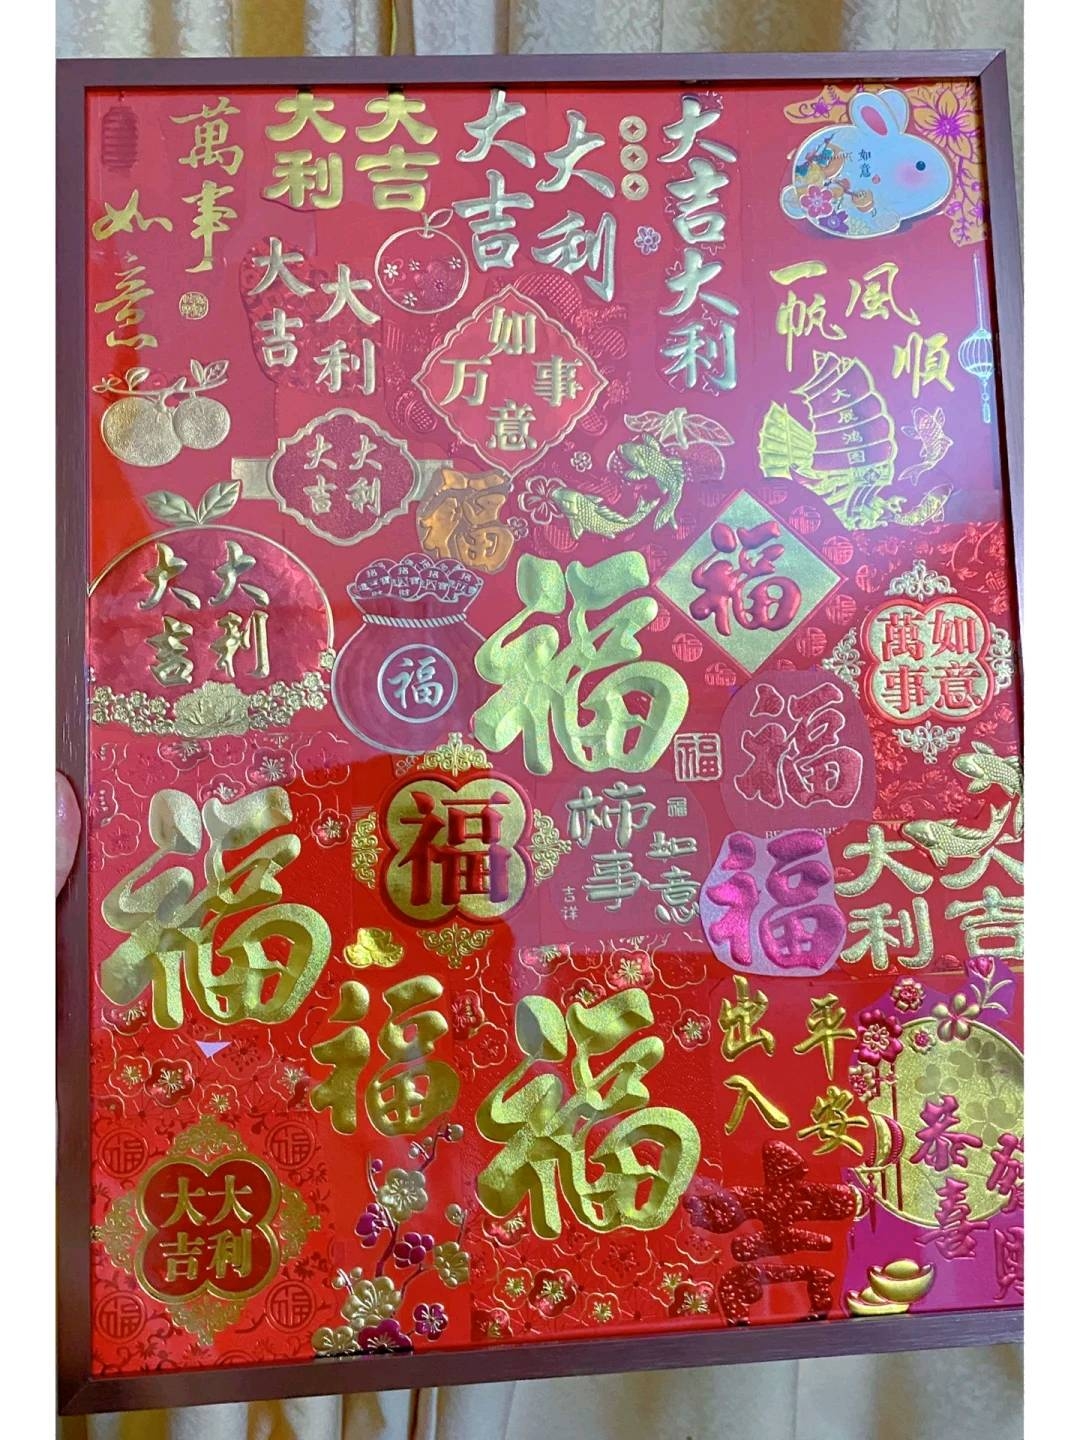 萬事
如意
大吉
大利
大吉
大利
大吉大利
如意
大吉
大利
如
万事
意
一帆風順
大展鴻图
大吉
大利
福
大吉
大利
福
福
福
萬事
如意
福
福
福
福
柿事
如意
福
吉祥
福
大吉
大利
福
福
福
出入
平安
恭喜
大吉
大利
福
福
福
吉